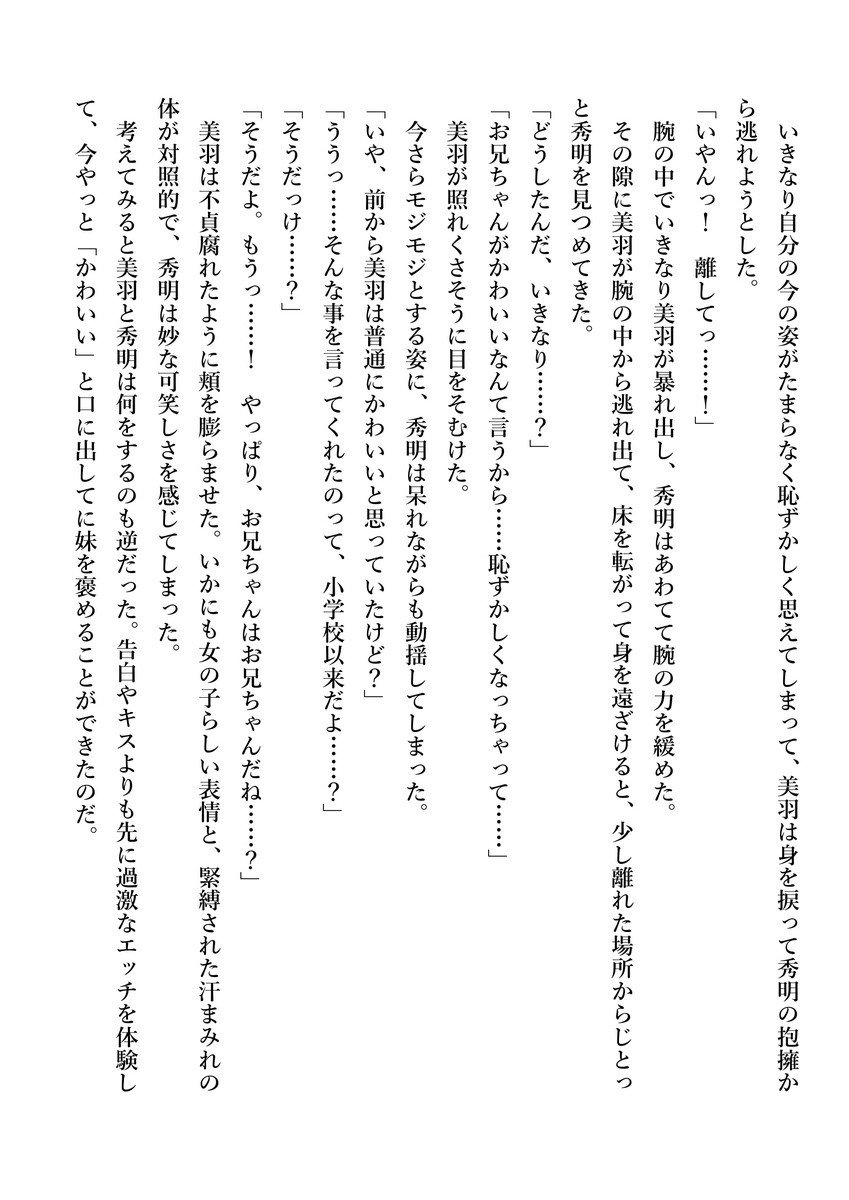 いきなり自分の今の姿がたまらなく恥ずかしく思えてしまって、美羽は身を捩って秀明の抱擁か
ら逃れようとした。
「いやんっ！　離してっ……！」
　腕の中でいきなり美羽が暴れ出し、秀明はあわてて腕の力を緩めた。
　その隙に美羽が腕の中から逃れ出て、床を転がって身を遠ざけると、少し離れた場所からじとっ
と秀明を見つめてきた。
「どうしたんだ、いきなり……？」
「お兄ちゃんがかわいいなんて言うから……恥ずかしくなっちゃって……」
　美羽が照れくさそうに目をそむけた。
　今さらモジモジとする姿に、秀明は呆れながらも動揺してしまった。
「いや、前から美羽は普通にかわいいと思っていたけど？」
「ううっ……そんな事を言ってくれたのって、小学校以来だよ……？」
「そうだっけ……？」
「そうだよ。もうっ……！　やっぱり、お兄ちゃんはお兄ちゃんだね……？」
　美羽は不貞腐れたように頬を膨らませた。いかにも女の子らしい表情と、緊縛された汗まみれの
体が対照的で、秀明は妙な可笑しさを感じてしまった。
　考えてみると美羽と秀明は何をするのも逆だった。告白やキスよりも先に過激なエッチを体験し
て、今やっと「かわいい」と口に出してに妹を褒めることができたのだ。